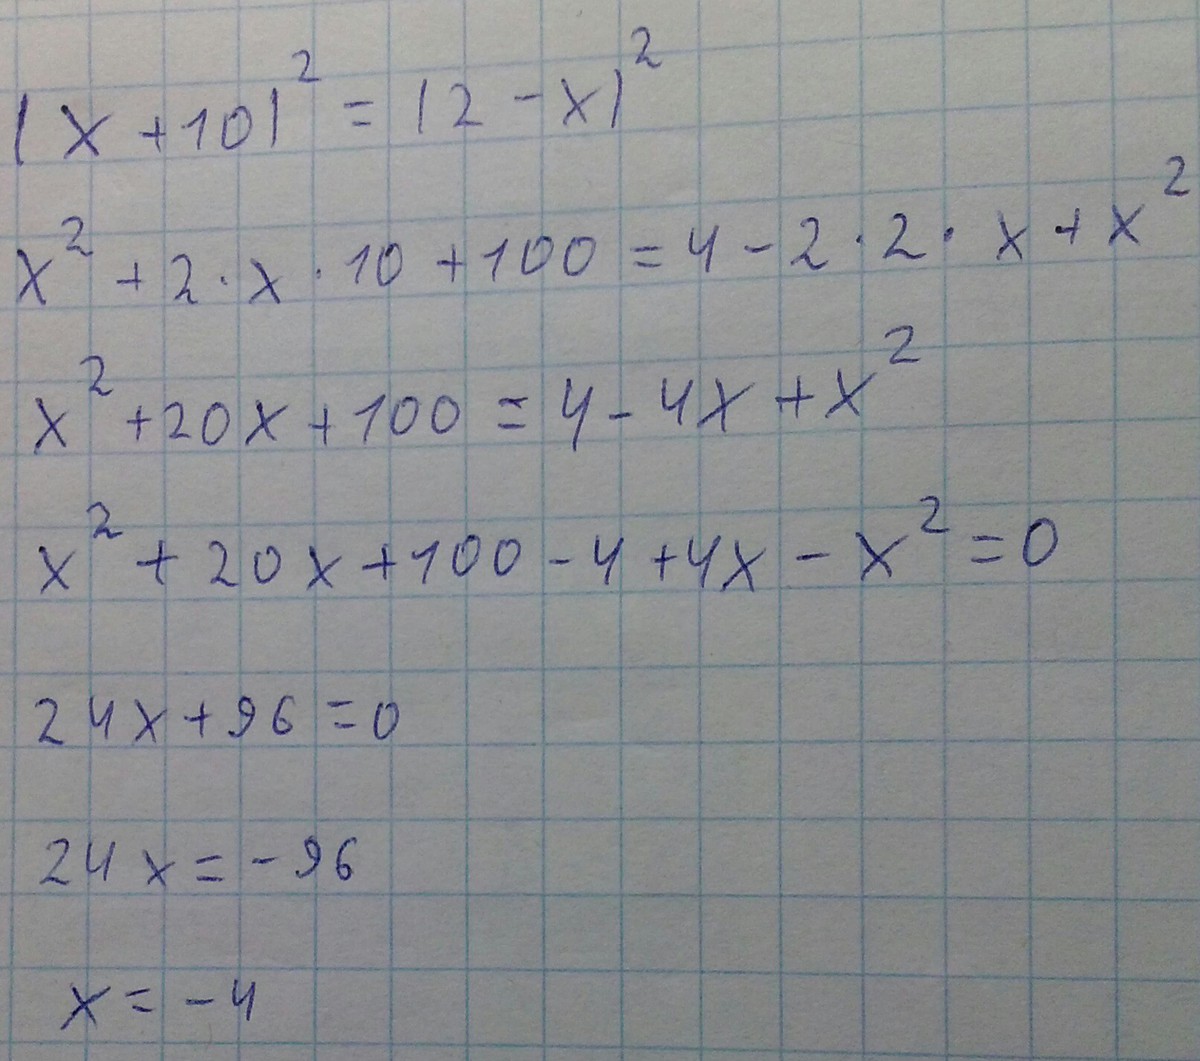 (x + 10)² = (2 - x)²
x² + 2 · x · 10 + 100 = 4 - 2 · 2 · x + x²
x² + 20x + 100 = 4 - 4x + x²
x² + 20x + 100 - 4 + 4x - x² = 0
24x + 96 = 0
24x = -96
x = -4